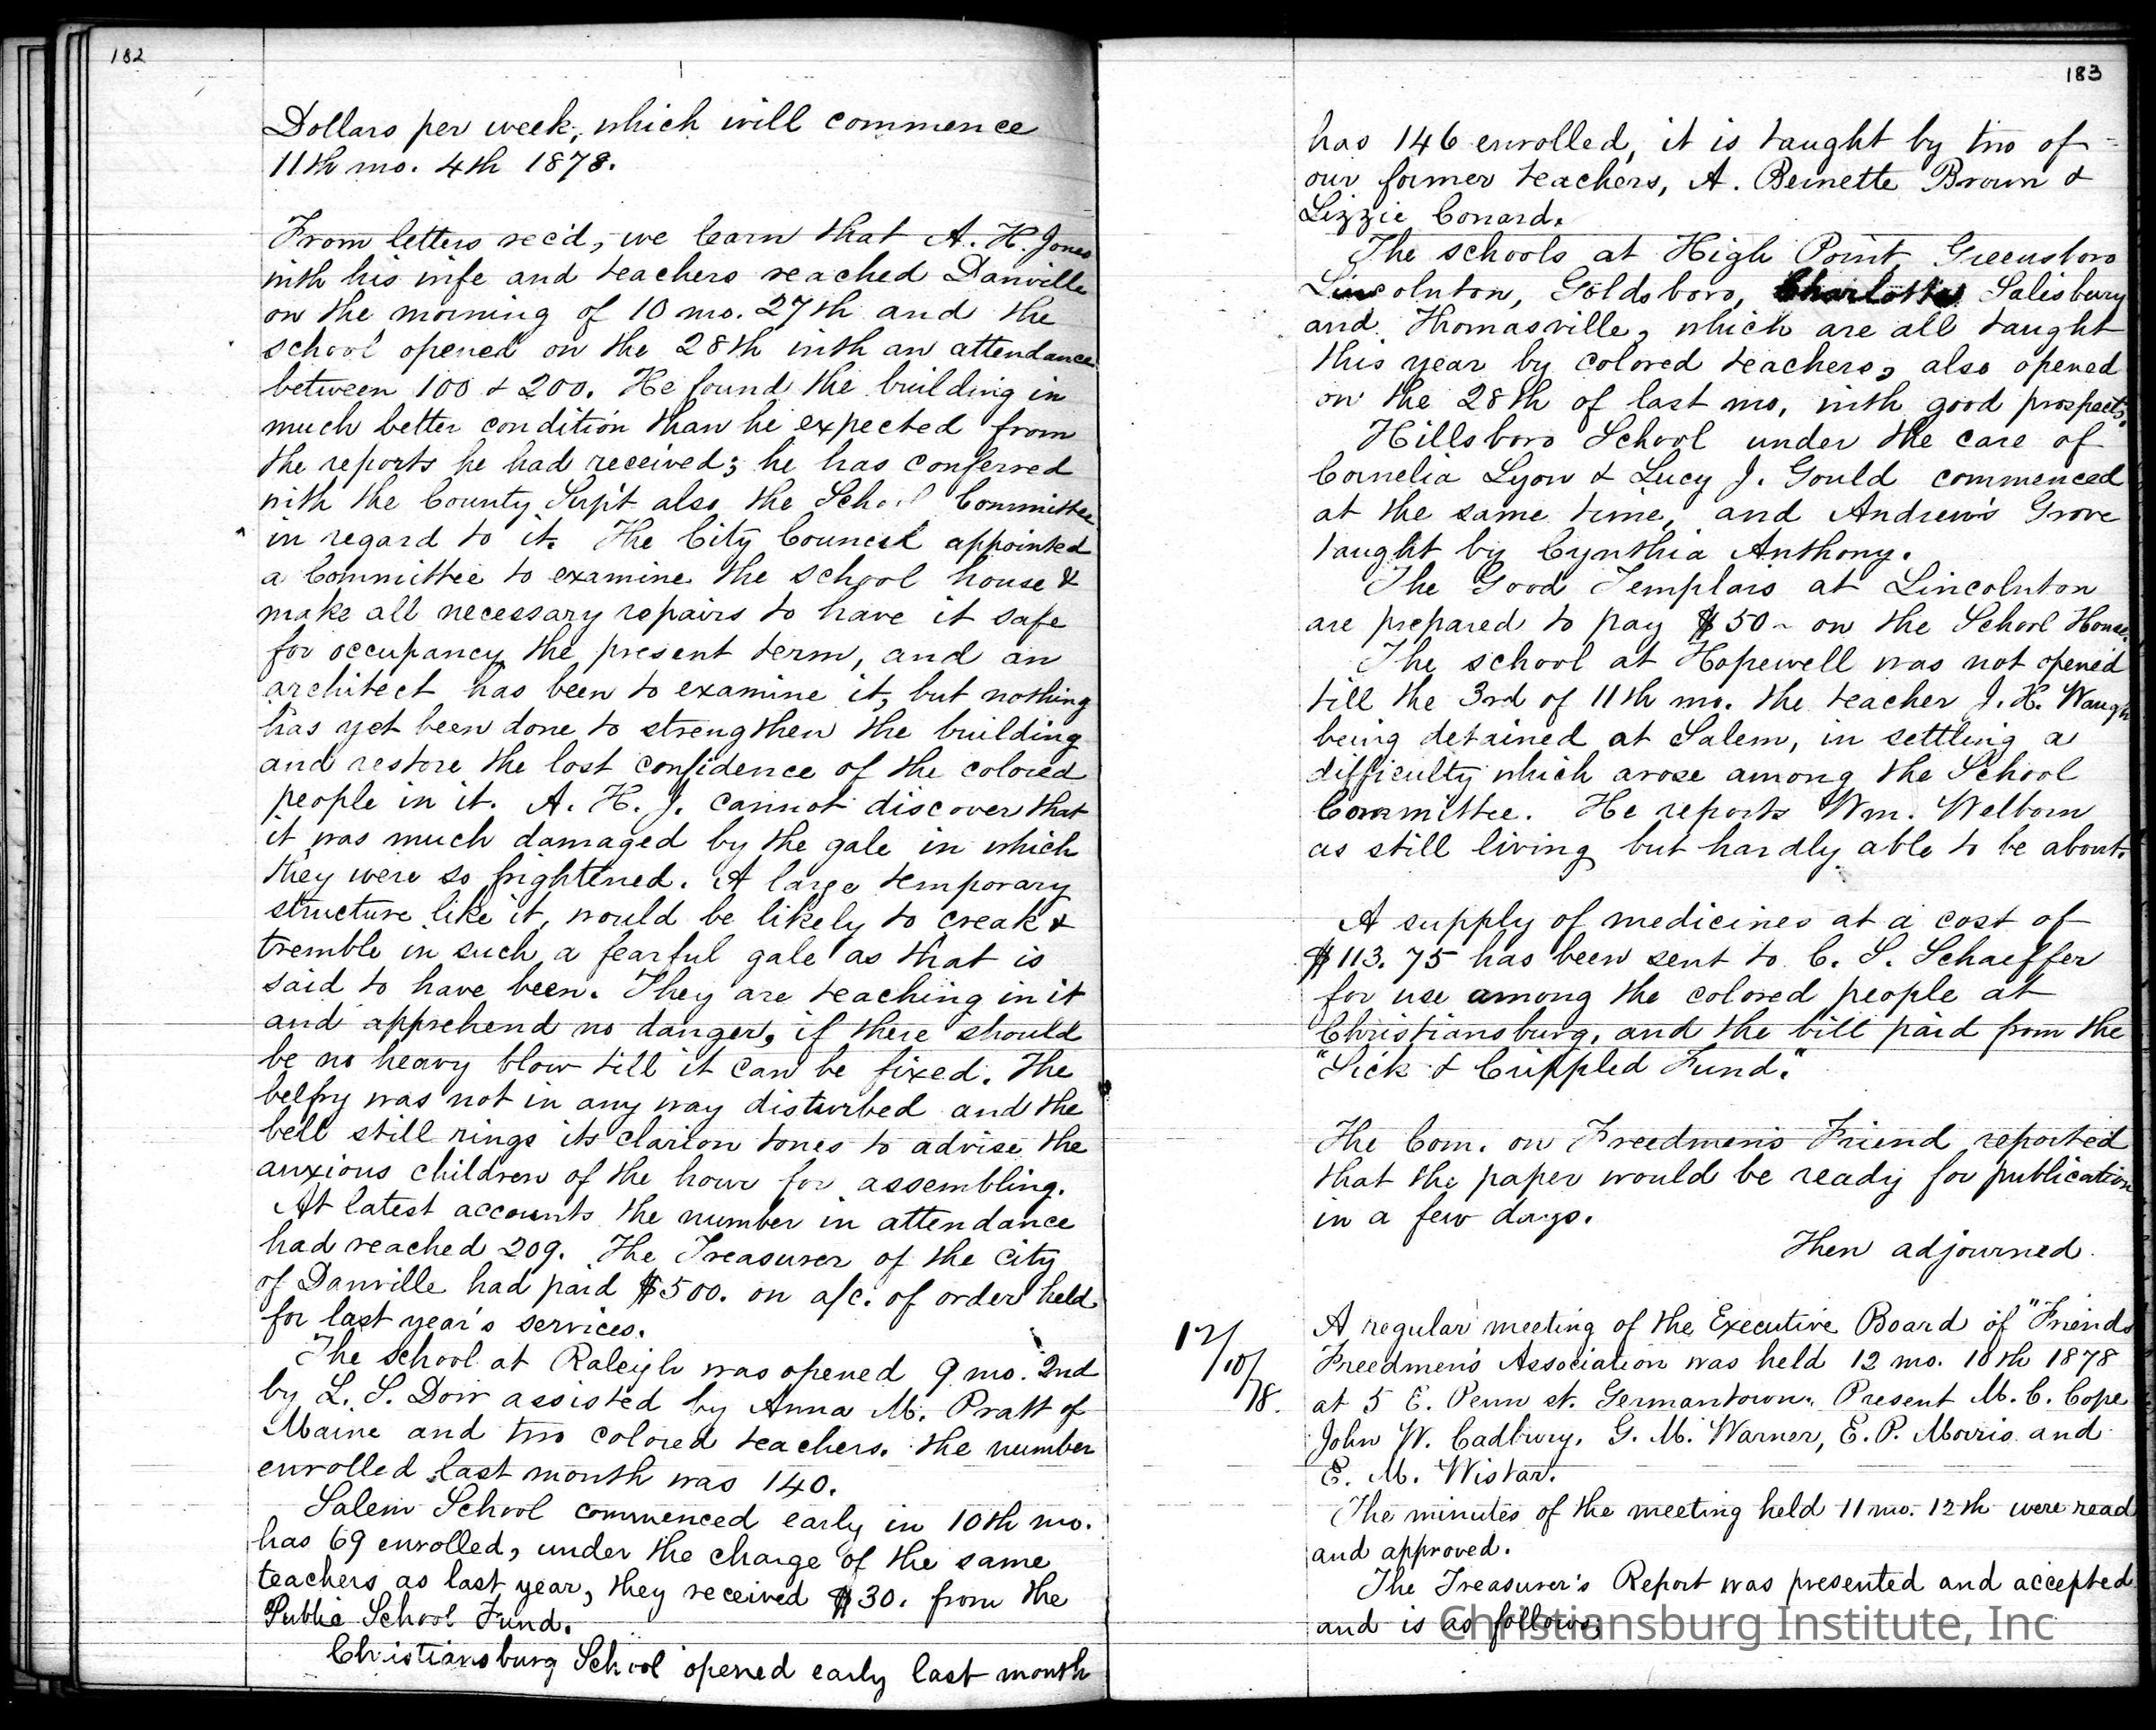 182
Dollars per week, which will commence
11th mo. 4th 1878.
From letters rec'd, we learn that A. H. Jones
with his wife and teachers reached Danville
on the morning of 10 mo. 27th and the
school opened on the 28th with an attendance
between 100 & 200. He found the building in
much better condition than he expected from
the reports he had received; he has conferred
with the County Sup't also the School Committee
in regard to it. The City Council appointed
a Committee to examine the school house &
make all necessary repairs to have it safe
for occupancy the present term, and an
architect has been to examine it, but nothing
has yet been done to strengthen the building
and restore the lost confidence of the colored
people in it. A. H. J. cannot discover that
it was much damaged by the gale in which
they were so frightened. A large temporary
structure like it, would be likely to creak &
tremble in such a fearful gale as that is
said to have been. They are teaching in it
and apprehend no danger, if there should
be no heavy blow till it can be fixed. The
belfry was not in any way disturbed and the
bell still rings its clarion tones to advise the
anxious children of the hour for assembling.
At latest accounts the number in attendance
had reached 209. The Treasurer of the city
of Danville had paid $500. on a/c. of order held
for last year's services.
The school at Raleigh was opened 9 mo. 2nd
by L. S. Dorr assisted by Anna M. Pratt of
Maine and two colored teachers. the number
enrolled last month was 140.
Salem School commenced early in 10th mo.
has 69 enrolled, under the charge of the same
teachers as last year, they received $30. from the
Public School Fund.
Christiansburg School opened early last month
183
has 146 enrolled, it is taught by two of
our former teachers, A. Bennette Brown &
Lizzie Conard.
The schools at High Point, Greensboro
Lincolnton, Goldsboro, Charlotte Salisbury
and Thomasville, which are all taught
this year by colored teachers, also opened
on the 28th of last mo, with good prospects.
Hillsboro School under the care of
Cornelia Lyon & Lucy J. Gould commenced
at the same time, and Andrew's Grove
taught by Cynthia Anthony.
The Good Templars at Lincolnton
are prepared to pay $50- on the School House.
The school at Hopewell was not opened
till the 3rd of 11th mo. the teacher J. H. Waugh
being detained at Salem, in settling a
difficulty which arose among the School
Committee. He reports Wm. Welborn
as still living but hardly able to be about.
A supply of medicines at a cost of
$113.75 has been sent to C. S. Schaeffer
for use among the colored people at
Christiansburg, and the bill paid from the
"Sick & Crippled Fund."
The Com. on Freedmen's Friend reported
that the paper would be ready for publication
in a few days.
Then adjourned.
12/10/78.
A regular meeting of the Executive Board of "Friends
Freedmen's Association was held 12 mo. 10th 1878
at 5 E. Penn st. Germantown. Present M. C. Cope
John W. Cadbury, G. M. Warner, E. P. Morris and
E. M. Wistar.
The minutes of the meeting held 11 mo. 12th were read
and approved.
The Treasurer's Report was presented and accepted
and is as follows:
Christiansburg Institute, Inc